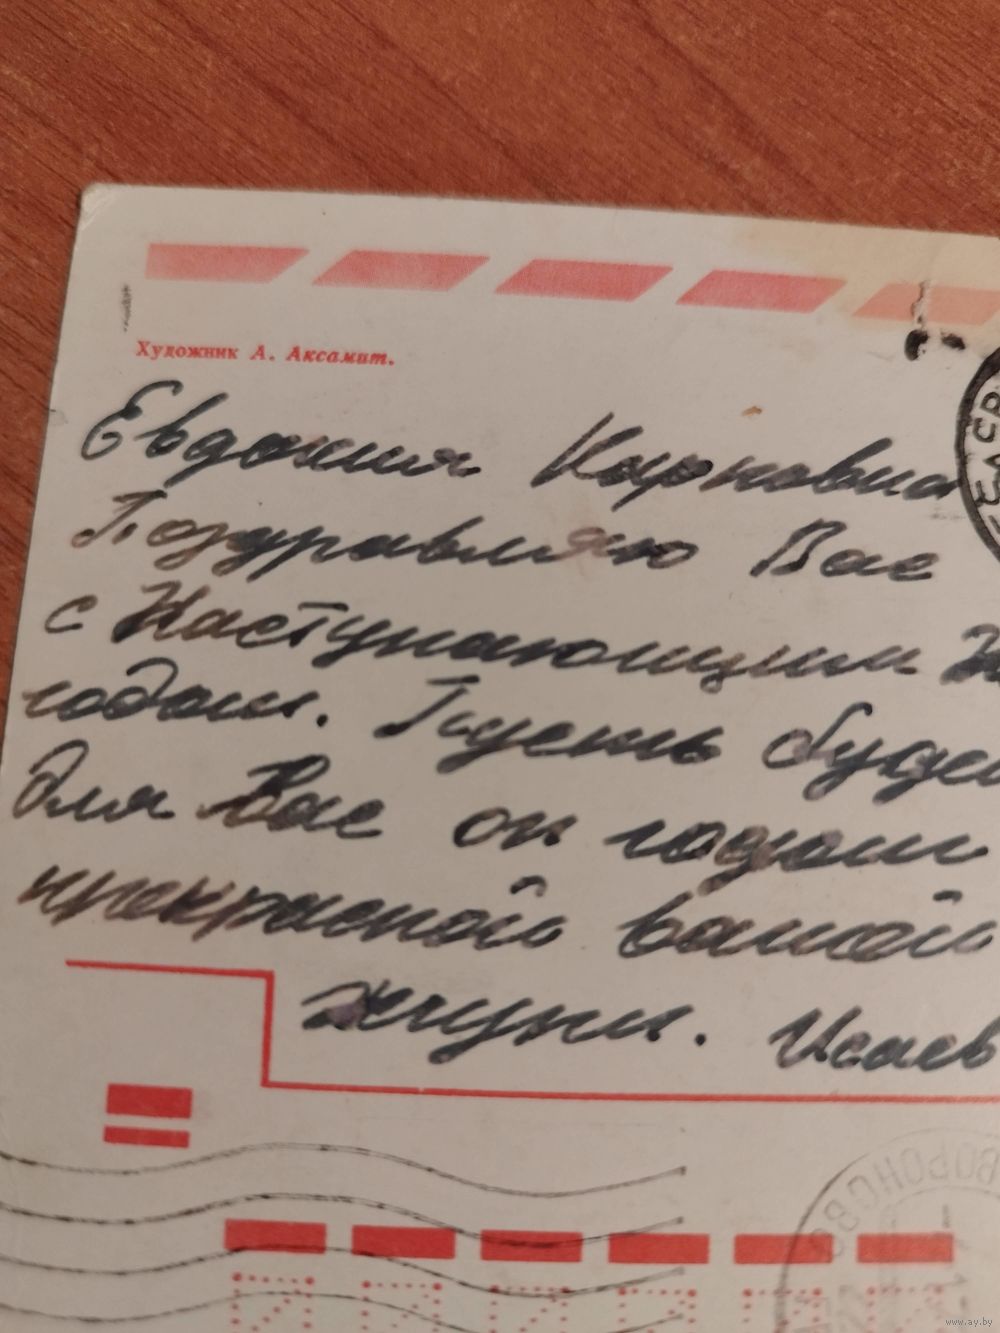 Художник А. Аксамит.
Евдокия Карповна
Поздравляю Вас
с Наступающим
годом. Пусть буде
для Вас он годом
прекрасной вашей
жизни. Исаев
ВОРОНОВО
www.ay.by